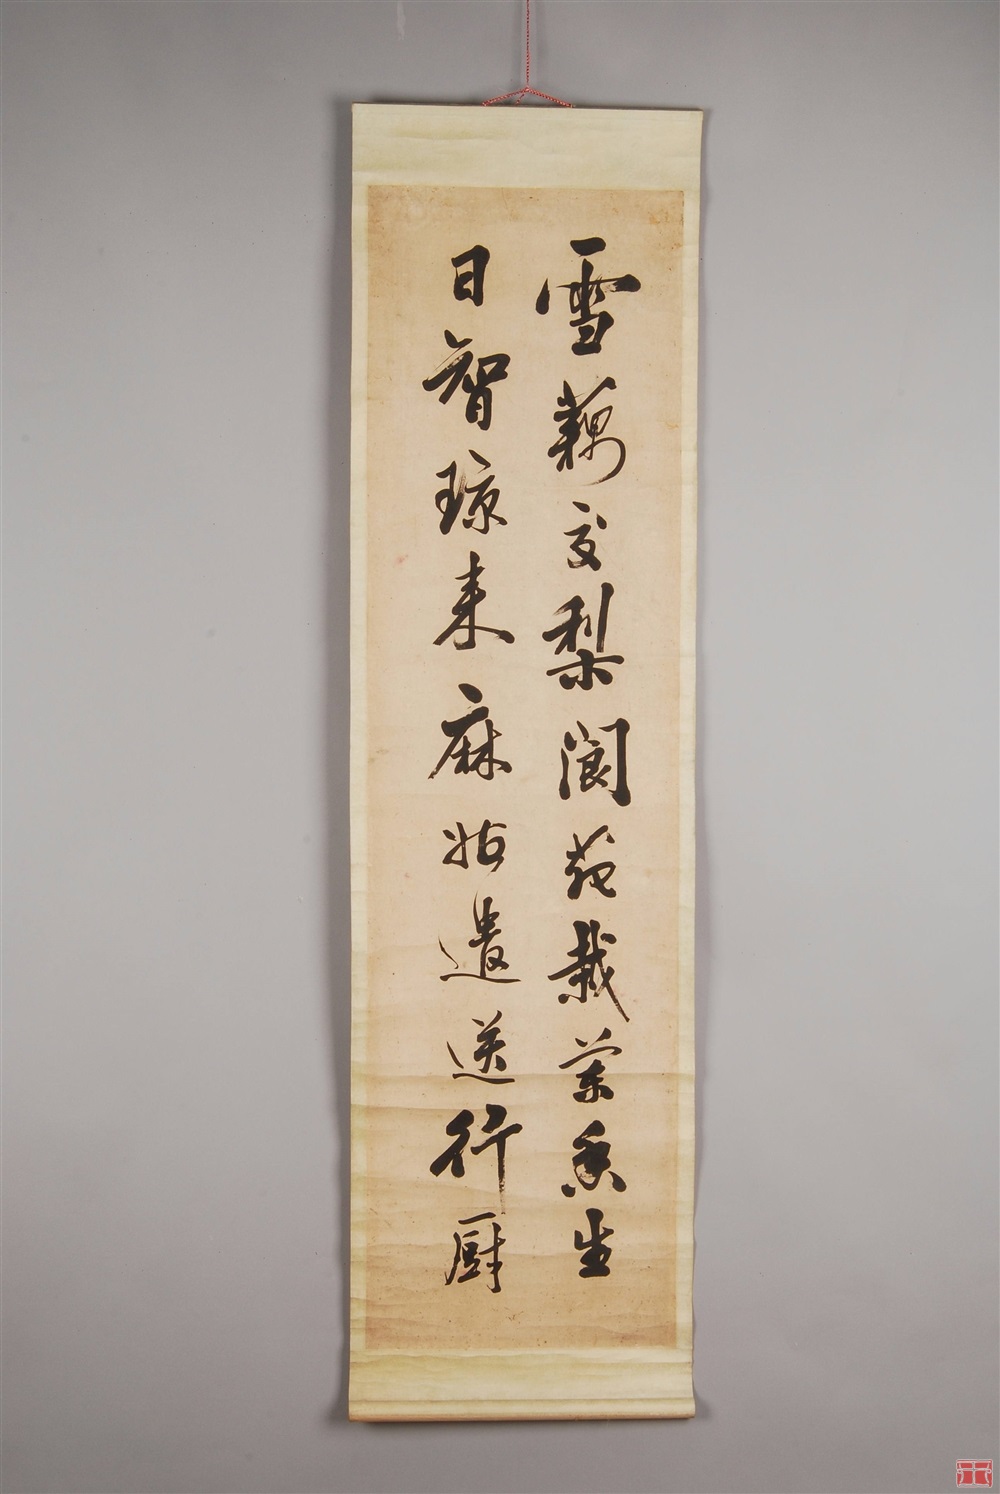 雪藕交梨阆苑栽兰香生
日智琼来麻姑遣送行厨